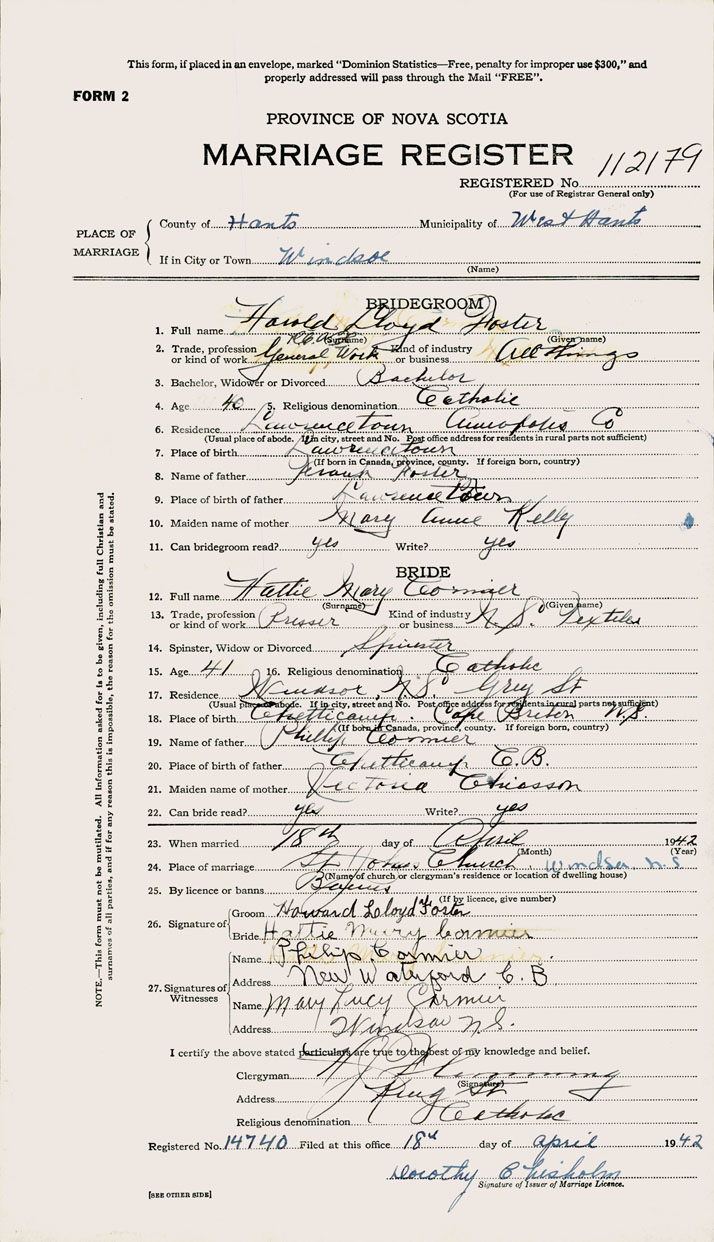 This form, if placed in an envelope, marked “Dominion Statistics—Free, penalty for improper use $300,” and
properly addressed will pass through the Mail “FREE”.
FORM 2
PROVINCE OF NOVA SCOTIA
MARRIAGE REGISTER
112179
REGISTERED No.
(For use of Registrar General only)
PLACE OF MARRIAGE
County of Hants Municipality of West Hants
If in City or Town Windsor
(Name)
BRIDEGROOM
1. Full name Harold Lloyd Foster
(Surname) (Given name)
2. Trade, profession or kind of work General Work Kind of industry or business All things
3. Bachelor, Widower or Divorced Bachelor
4. Age 40 5. Religious denomination Catholic
6. Residence Lawrencetown Annapolis Co
(Usual place of abode. If in city, street and No. Post office address for residents in rural parts not sufficient)
7. Place of birth Lawrencetown
(If born in Canada, province, county. If foreign born, country)
8. Name of father Frank Foster
9. Place of birth of father Lawrencetown
10. Maiden name of mother Mary Anne Kelly
11. Can bridegroom read? yes Write? yes
BRIDE
12. Full name Hattie Mary Cormier
(Surname) (Given name)
13. Trade, profession or kind of work Presser Kind of industry or business N.S. Textiles
14. Spinster, Widow or Divorced Spinster
15. Age 41 16. Religious denomination Catholic
17. Residence Windsor, N.S. Grey St
(Usual place of abode. If in city, street and No. Post office address for residents in rural parts not sufficient)
18. Place of birth Chetticamp. Cape Breton N.S.
(If born in Canada, province, county. If foreign born, country)
19. Name of father Phillip Cormier
20. Place of birth of father Chetticamp C.B.
21. Maiden name of mother Victoria Chiasson
22. Can bride read? yes Write? yes
23. When married 18th day of April 1942
(Month) (Year)
24. Place of marriage St Johns Church, Windsor N.S
(Name of church or clergyman's residence or location of dwelling house)
25. By licence or banns Banns
(If by licence, give number)
26. Signature of
Groom Howard Lloyd Foster
Bride Hattie Mary Cormier
27. Signatures of Witnesses
Name Philip Cormier
Address New Waterford C.B
Name Mary Lucy Cormier
Address Windsor N.S.
I certify the above stated particulars are true to the best of my knowledge and belief.
Clergyman
(Signature)
Address King St
Religious denomination Catholic
Registered No. 14740 Filed at this office 18th day of april 1942
Dorothy Chisholm
Signature of Issuer of Marriage Licence.
[SEE OTHER SIDE]
NOTE.—This form must not be mutilated. All information asked for is to be given, including full Christian and
surnames of all parties, and if for any reason this is impossible, the reason for the omission must be stated.